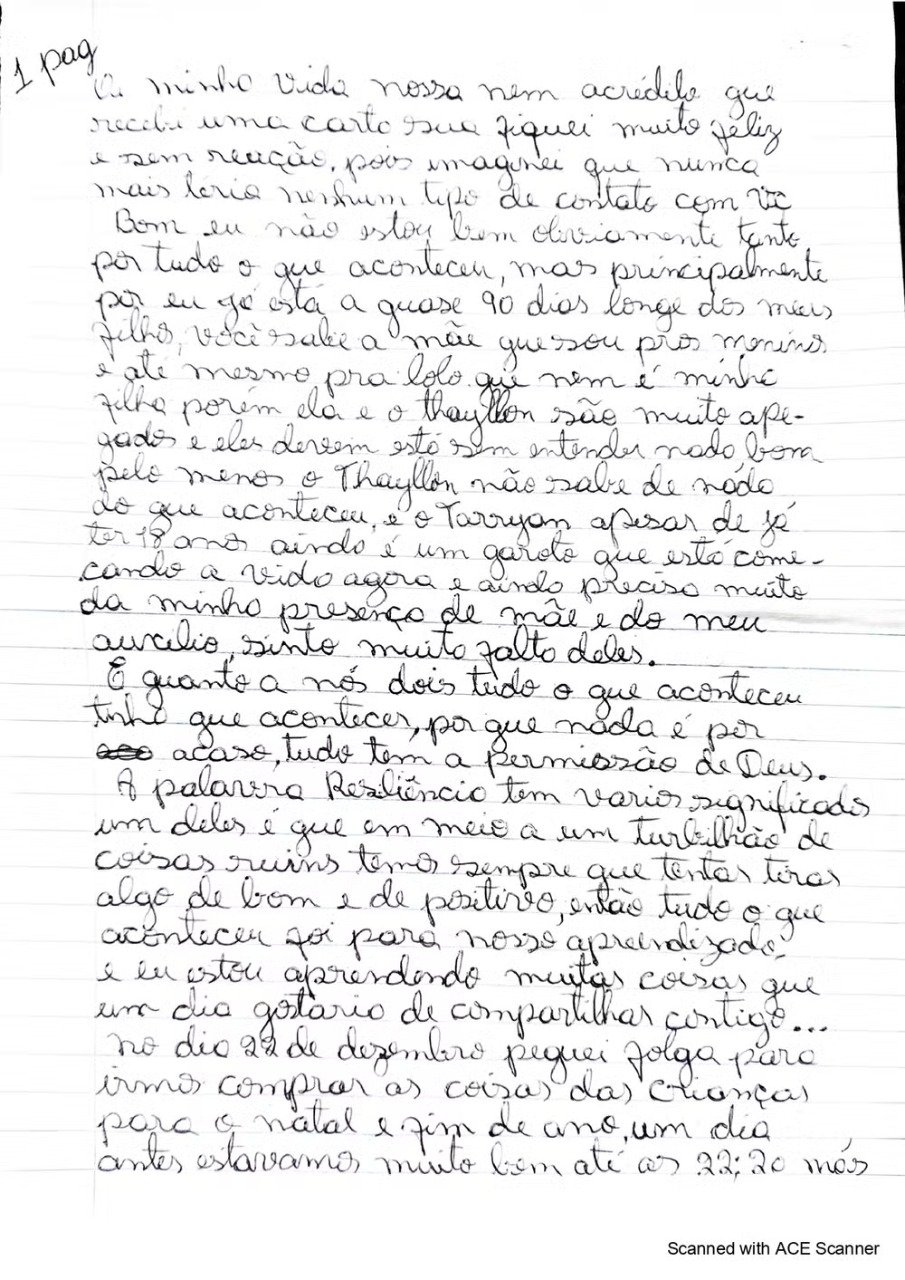 1 pag
Oi minha vida nossa nem acredito que
recebi uma carta sua fiquei muito feliz
e sem reação, pois imaginei que nunca
mais teria nenhum tipo de contato com vc
Bom eu não estou bem obviamente tanto
por tudo o que aconteceu, mas principalmente
por eu já está a quase 90 dias longe dos meus
filhos, você sabe a mãe que sou pros meninos
e até mesmo pra lolo que nem é minha
filha porém ela e o Thayllon são muito ape-
gados e eles devem está sem entender nada bom
pelo menos o Thayllon não sabe de nada
do que aconteceu, e o Tarryan apesar de já
ter 18 anos ainda é um garoto que está come-
cando a vida agora e ainda precisa muito
da minha presença de mãe e do meu
auxilio, sinto muito falta deles.
E quanto a nós dois tudo o que aconteceu
tinha que acontecer, por que nada é por
acaso, tudo tem a permissão de Deus.
A palavra Resiliência tem varios significados
um deles é que em meio a um turbilhão de
coisas ruins temos sempre que tentar tirar
algo de bom e de positivo, então tudo o que
aconteceu foi para nosso aprendizado
e eu estou aprendendo muitas coisas que
um dia gostaria de compartilhar contigo...
No dia 22 de dezembro peguei folga para
irmos comprar as coisas das crianças
para o natal e fim de ano, um dia
antes estavamos muito bem até as 22:20 mas
Scanned with ACE Scanner